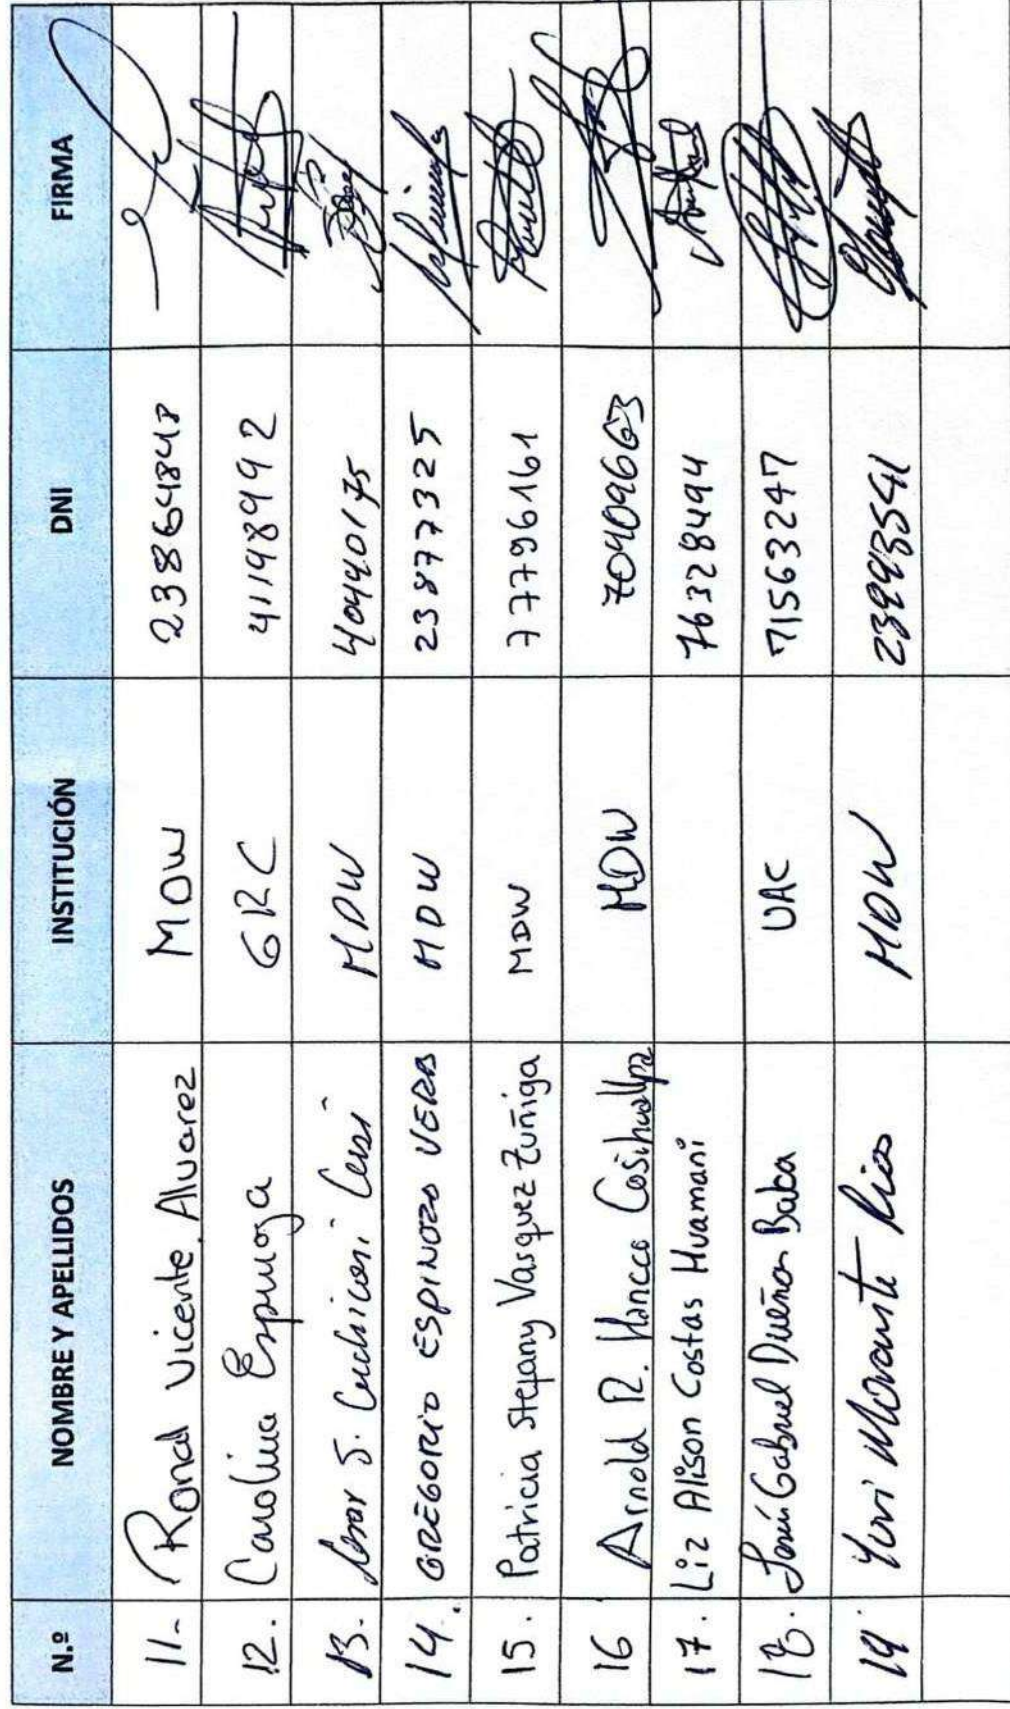 N.º NOMBRE Y APELLIDOS INSTITUCIÓN DNI FIRMA
11- Ronal Vicente Alvarez MDW 23864848
12. Carolina Espinoza GRC 41198992
13. J. MDW 40440175
14. GREGORIO ESPINOZA VERA MDW 23877325
15. Patricia Stefany Vasquez Zuñiga MDW 77796161
16 Arnold R. Hancco Cosihuallpa MDW 70409663
17. Liz Alison Costas Huamani 76328494
18. Gabriel Dueñas Baca UAC 71563247
19. Morante Rios MDW